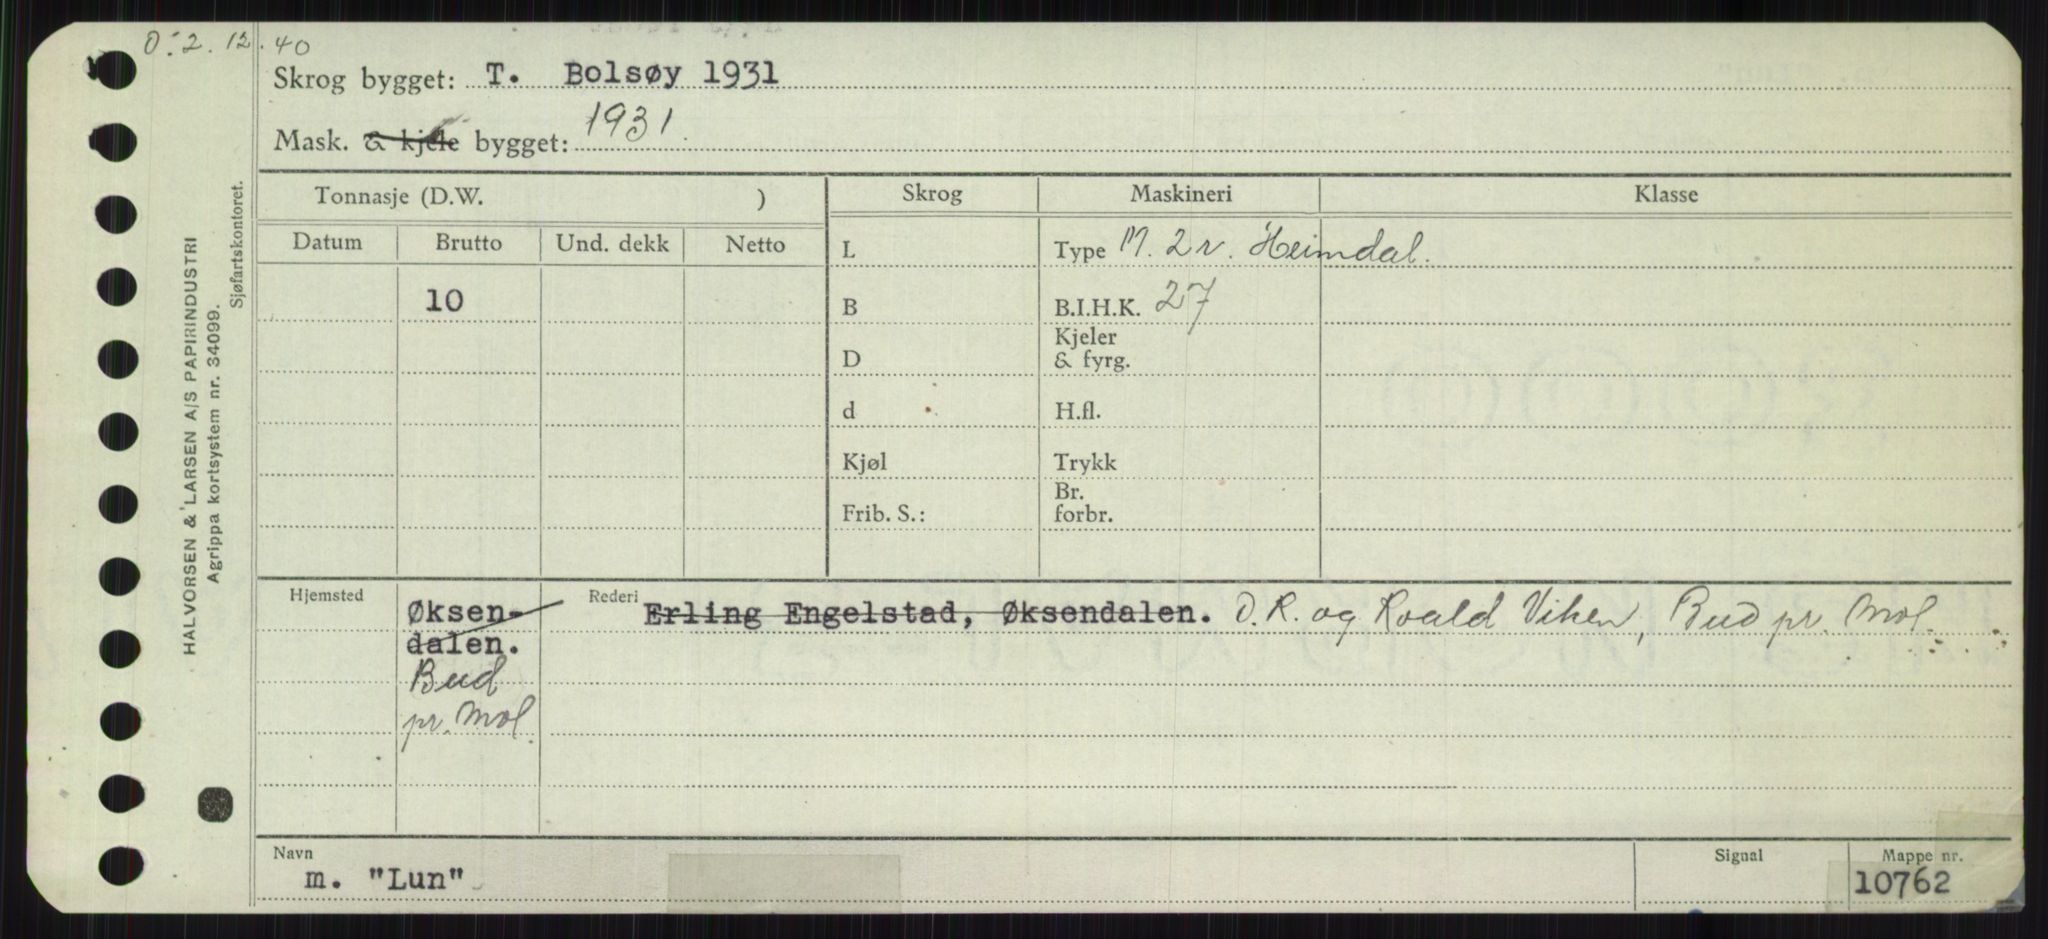 O: 2. 12. 40
Skrog bygget: T. Bolsøy 1931
Mask. & kjele bygget: 1931.
Tonnasje (D.W. )
Skrog Maskineri Klasse
Datum Brutto Und. dekk Netto
L Type M. 2 v. Heimdal.
10 B B.I.H.K. 27
Kjeler
D & fyrg.
d H.fl.
Kjøl Trykk
Br.
Frib. S.: forbr.
Hjemsted Øksen- Rederi Erling Engelstad, Øksendalen. O. R. og Roald Viken, Bud pr. Mol.
dalen.
Bud
pr. Mol.
Navn Signal Mappe nr.
m. "Lun" 10762
HALVORSEN & LARSEN A/S PAPIRINDUSTRI
Agrippa kortsystem nr. 34099.
Sjøfartskontoret.